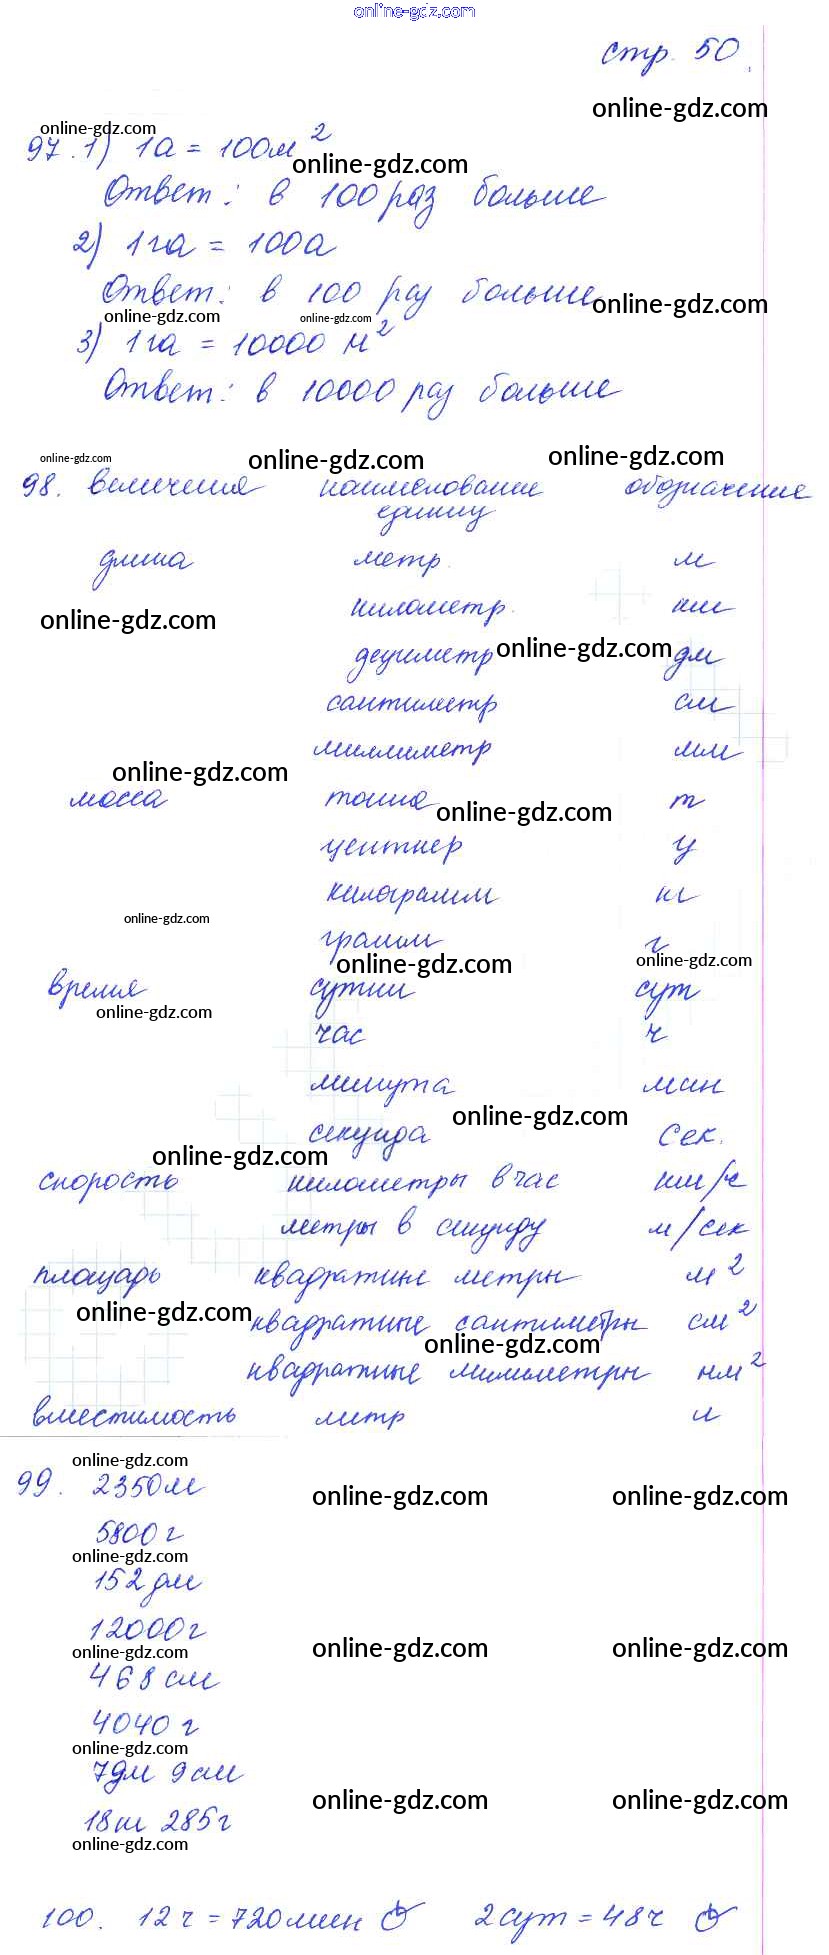 online-gdz.com
стр. 50
online-gdz.com
online-gdz.com
97. 1) 1а = 100м²
online-gdz.com
Ответ: в 100 раз больше
2) 1га = 100а
Ответ: в 100 раз больше
online-gdz.com
online-gdz.com
online-gdz.com
3) 1га = 10000 м²
Ответ: в 10000 раз больше
online-gdz.com
online-gdz.com
online-gdz.com
98. величения наименование обозначение
единиц
длина метр. м
километр. км
online-gdz.com
дециметр дм
online-gdz.com
сантиметр см
миллиметр мм
online-gdz.com
масса тонна т
online-gdz.com
центнер ц
килограмм кг
online-gdz.com
грамм г
online-gdz.com
online-gdz.com
время сутки сут
online-gdz.com
час ч
минута мин
online-gdz.com
секунда сек.
online-gdz.com
скорость километры в час км/ч
метры в секунду м/сек
площадь квадратные метры м²
online-gdz.com
квадратные сантиметры см²
online-gdz.com
квадратные милиметры мм²
вместимость литр л
online-gdz.com
99. 2350м
online-gdz.com
online-gdz.com
5800 г
online-gdz.com
152 дм
12000г
online-gdz.com
online-gdz.com
online-gdz.com
468 см
4040 г
online-gdz.com
7дм 9см
online-gdz.com
online-gdz.com
18кг 285г
online-gdz.com
100. 12 ч = 720 мин 2 сут = 48ч